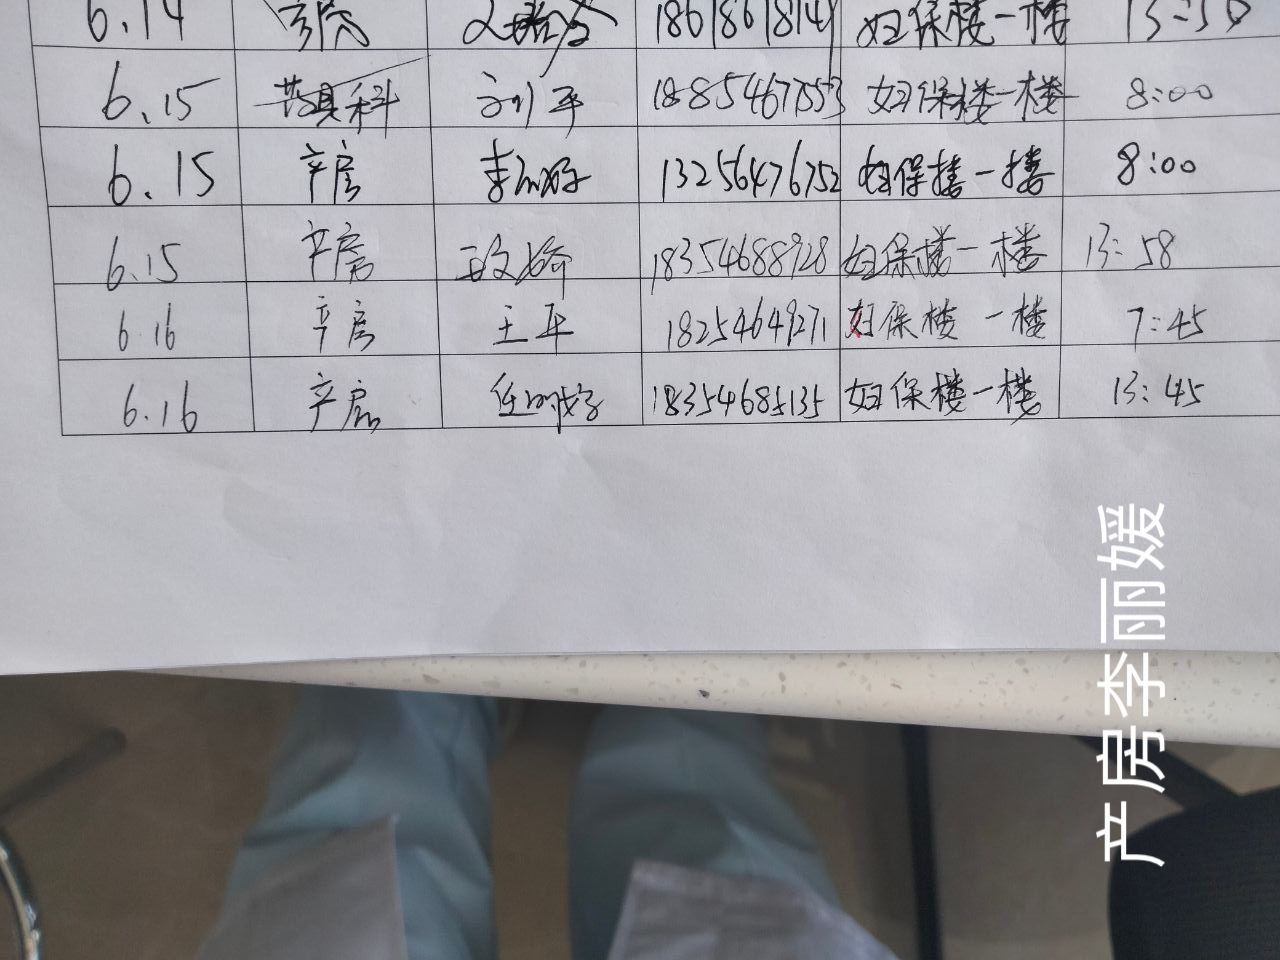 6.14 18618618149 妇保楼一楼 13:50
6.15 科 刘平 妇保楼一楼 8:00
6.15 产房 13256476752 妇保楼一楼 8:00
6.15 产房 18354688928 妇保楼一楼 13:58
6.16 产房 王平 18254649271 妇保楼一楼 7:45
6.16 产房 18354685135 妇保楼一楼 13:45
产房李丽媛